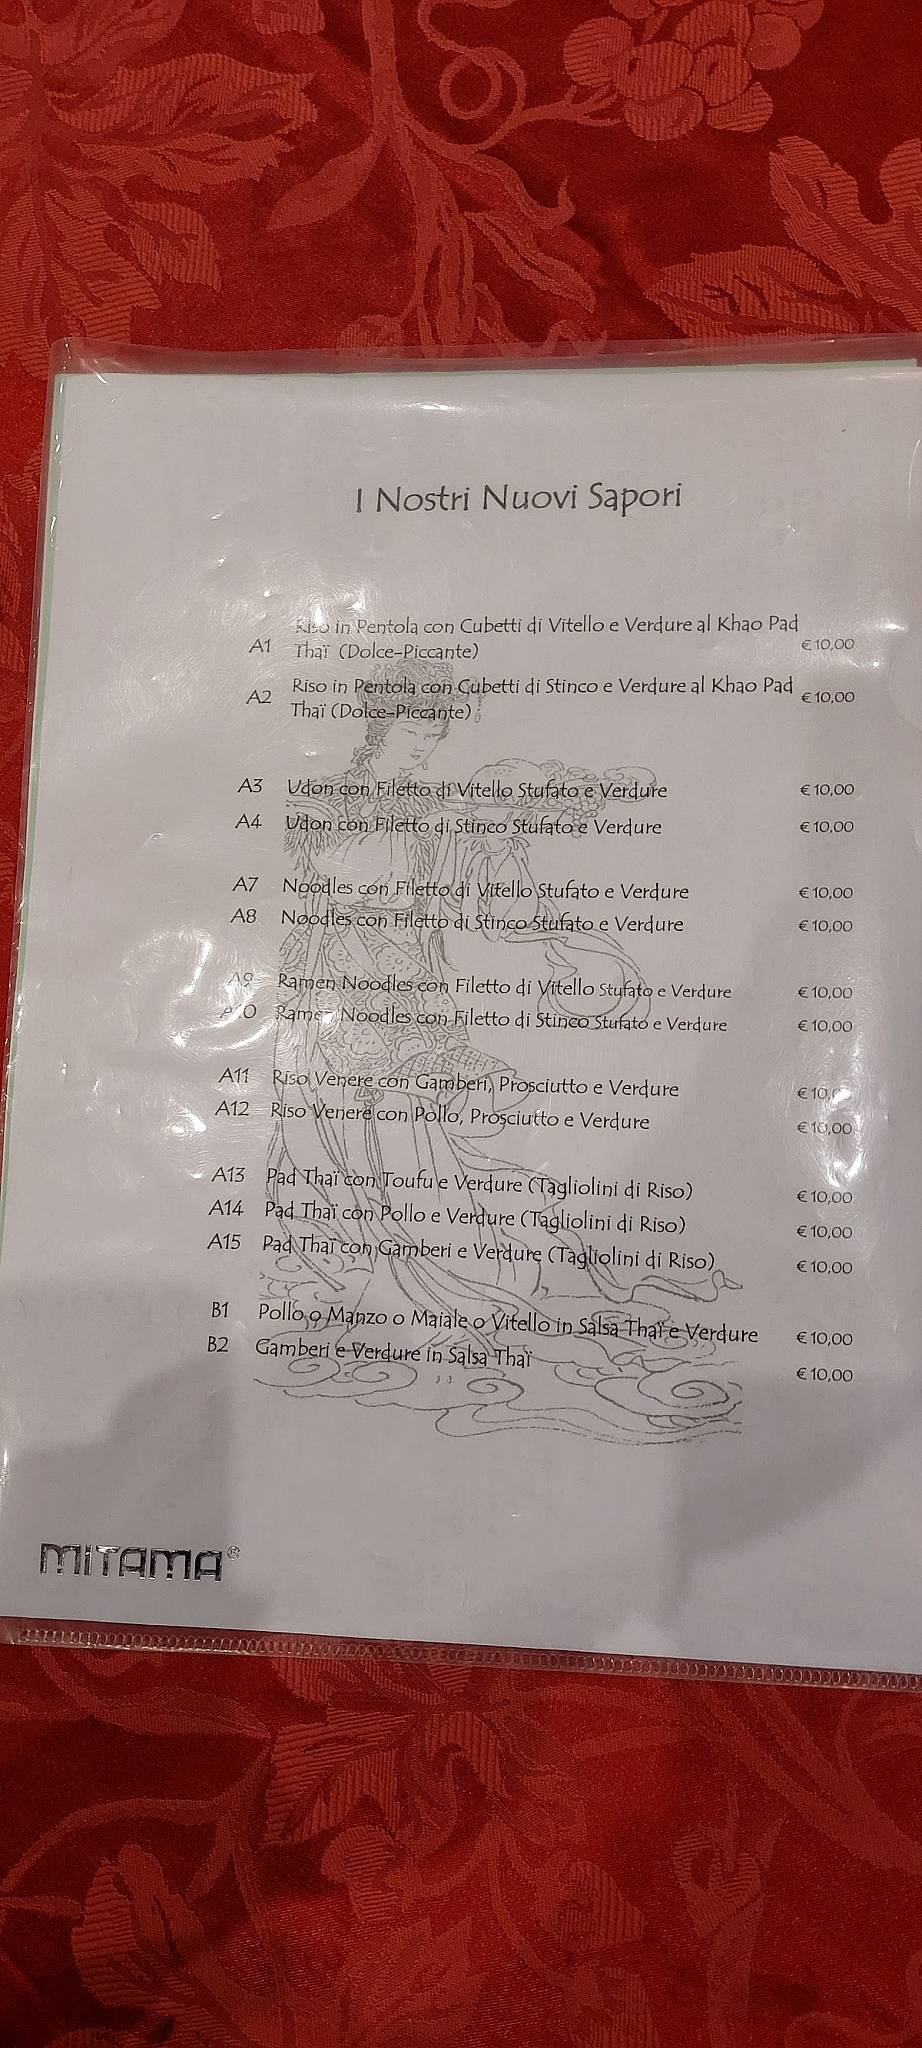 I Nostri Nuovi Sapori
A1 Riso in Pentola con Cubetti di Vitello e Verdure al Khao Pad
Thaï (Dolce-Piccante) € 10,00
A2 Riso in Pentola con Cubetti di Stinco e Verdure al Khao Pad
Thaï (Dolce-Piccante) € 10,00
A3 Udon con Filetto di Vitello Stufato e Verdure € 10,00
A4 Udon con Filetto di Stinco Stufato e Verdure € 10,00
A7 Noodles con Filetto di Vitello Stufato e Verdure € 10,00
A8 Noodles con Filetto di Stinco Stufato e Verdure € 10,00
A9 Ramen Noodles con Filetto di Vitello Stufato e Verdure € 10,00
A10 Ramen Noodles con Filetto di Stinco Stufato e Verdure € 10,00
A11 Riso Venere con Gamberi, Prosciutto e Verdure € 10,00
A12 Riso Venere con Pollo, Prosciutto e Verdure € 10,00
A13 Pad Thaï con Toufu e Verdure (Tagliolini di Riso) € 10,00
A14 Pad Thaï con Pollo e Verdure (Tagliolini di Riso) € 10,00
A15 Pad Thaï con Gamberi e Verdure (Tagliolini di Riso) € 10,00
B1 Pollo o Manzo o Maiale o Vitello in Salsa Thaï e Verdure € 10,00
B2 Gamberi e Verdure in Salsa Thaï € 10,00
MITAMA®